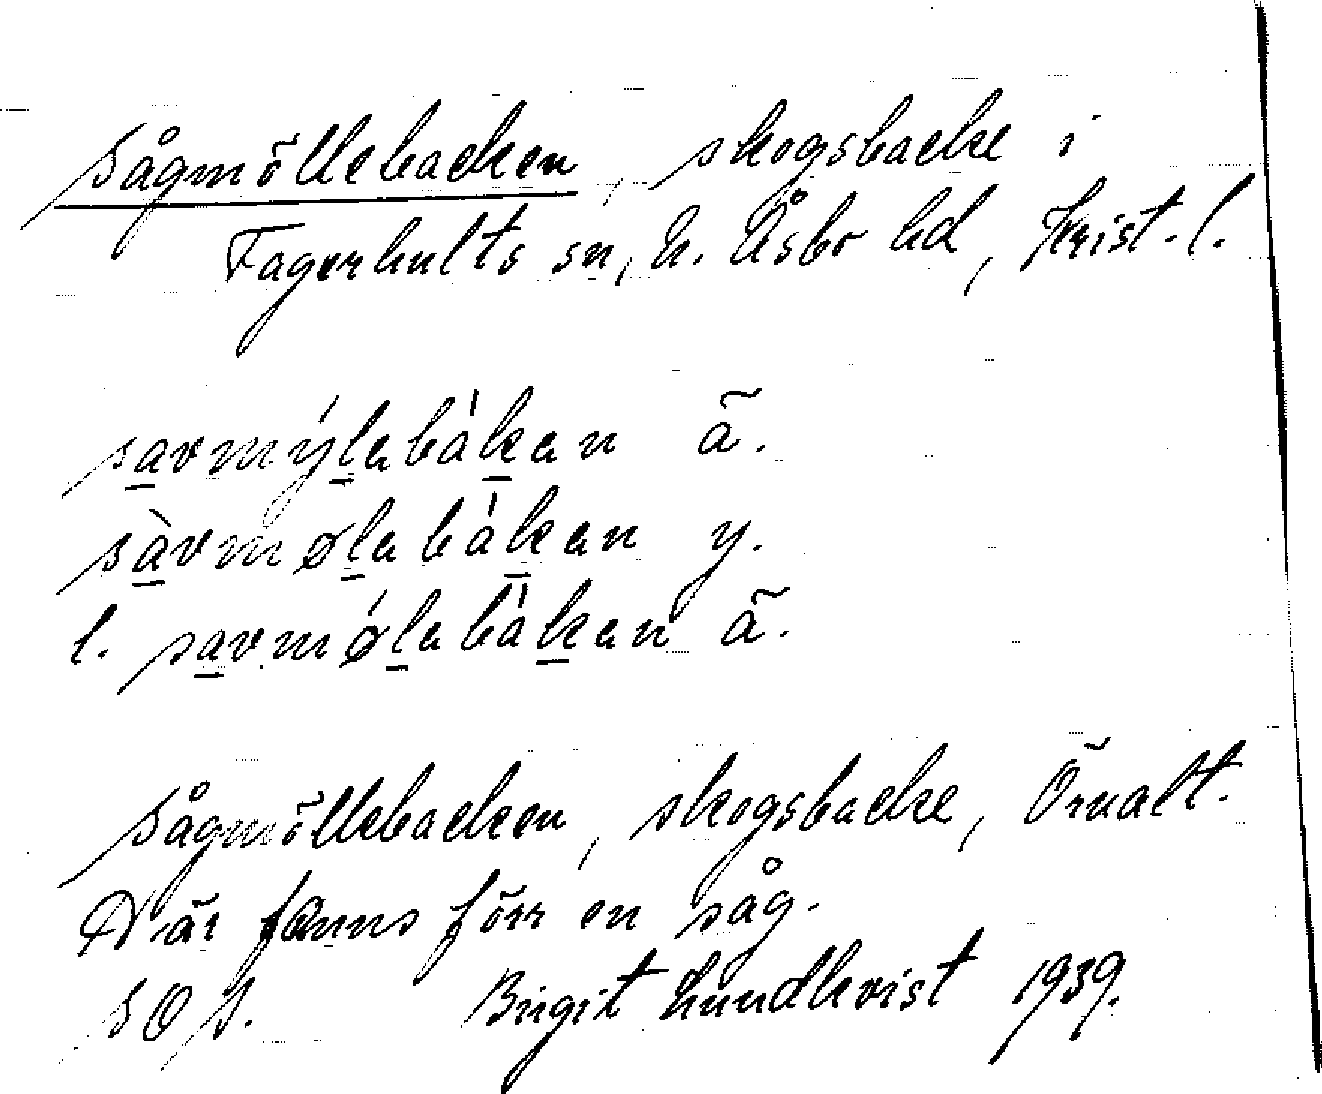 Sågmöllebacken, skogsbacke i
Fagerhults sn, N. Åsbo hd, Krist. l.
savmýlabàkan ä.
sàvmølabàkan y.
l. savmǿlabàkan ä.
Sågmöllebacken, skogsbacke, Örnalt.
Där fanns förr en såg.
SOS. Birgit Lundkvist 1939.